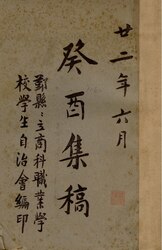 廿二年六月
癸酉集稿
鄞縣縣立商科職業學
校學生自治會編印